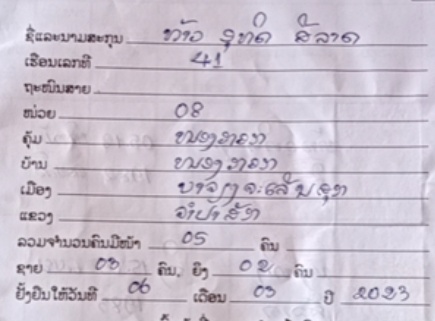 ຊື່ແລະນາມສະກຸນ ທ້າວ ສຸທິດ ສີລາດ
ເຮືອນເລກທີ 41
ຖະໜົນສາຍ
ໜ່ວຍ 08
ຄຸ້ມ
ບ້ານ
ເມືອງ ບາຈຽງຈະເລີນສຸກ
ແຂວງ ຈຳປາສັກ
ລວມຈຳນວນຄົນມີໜ້າ 05 ຄົນ
ຊາຍ 03 ຄົນ, ຍິງ 02 ຄົນ
ຢັ້ງຢືນໃຫ້ວັນທີ 06 ເດືອນ 03 ປີ 2023